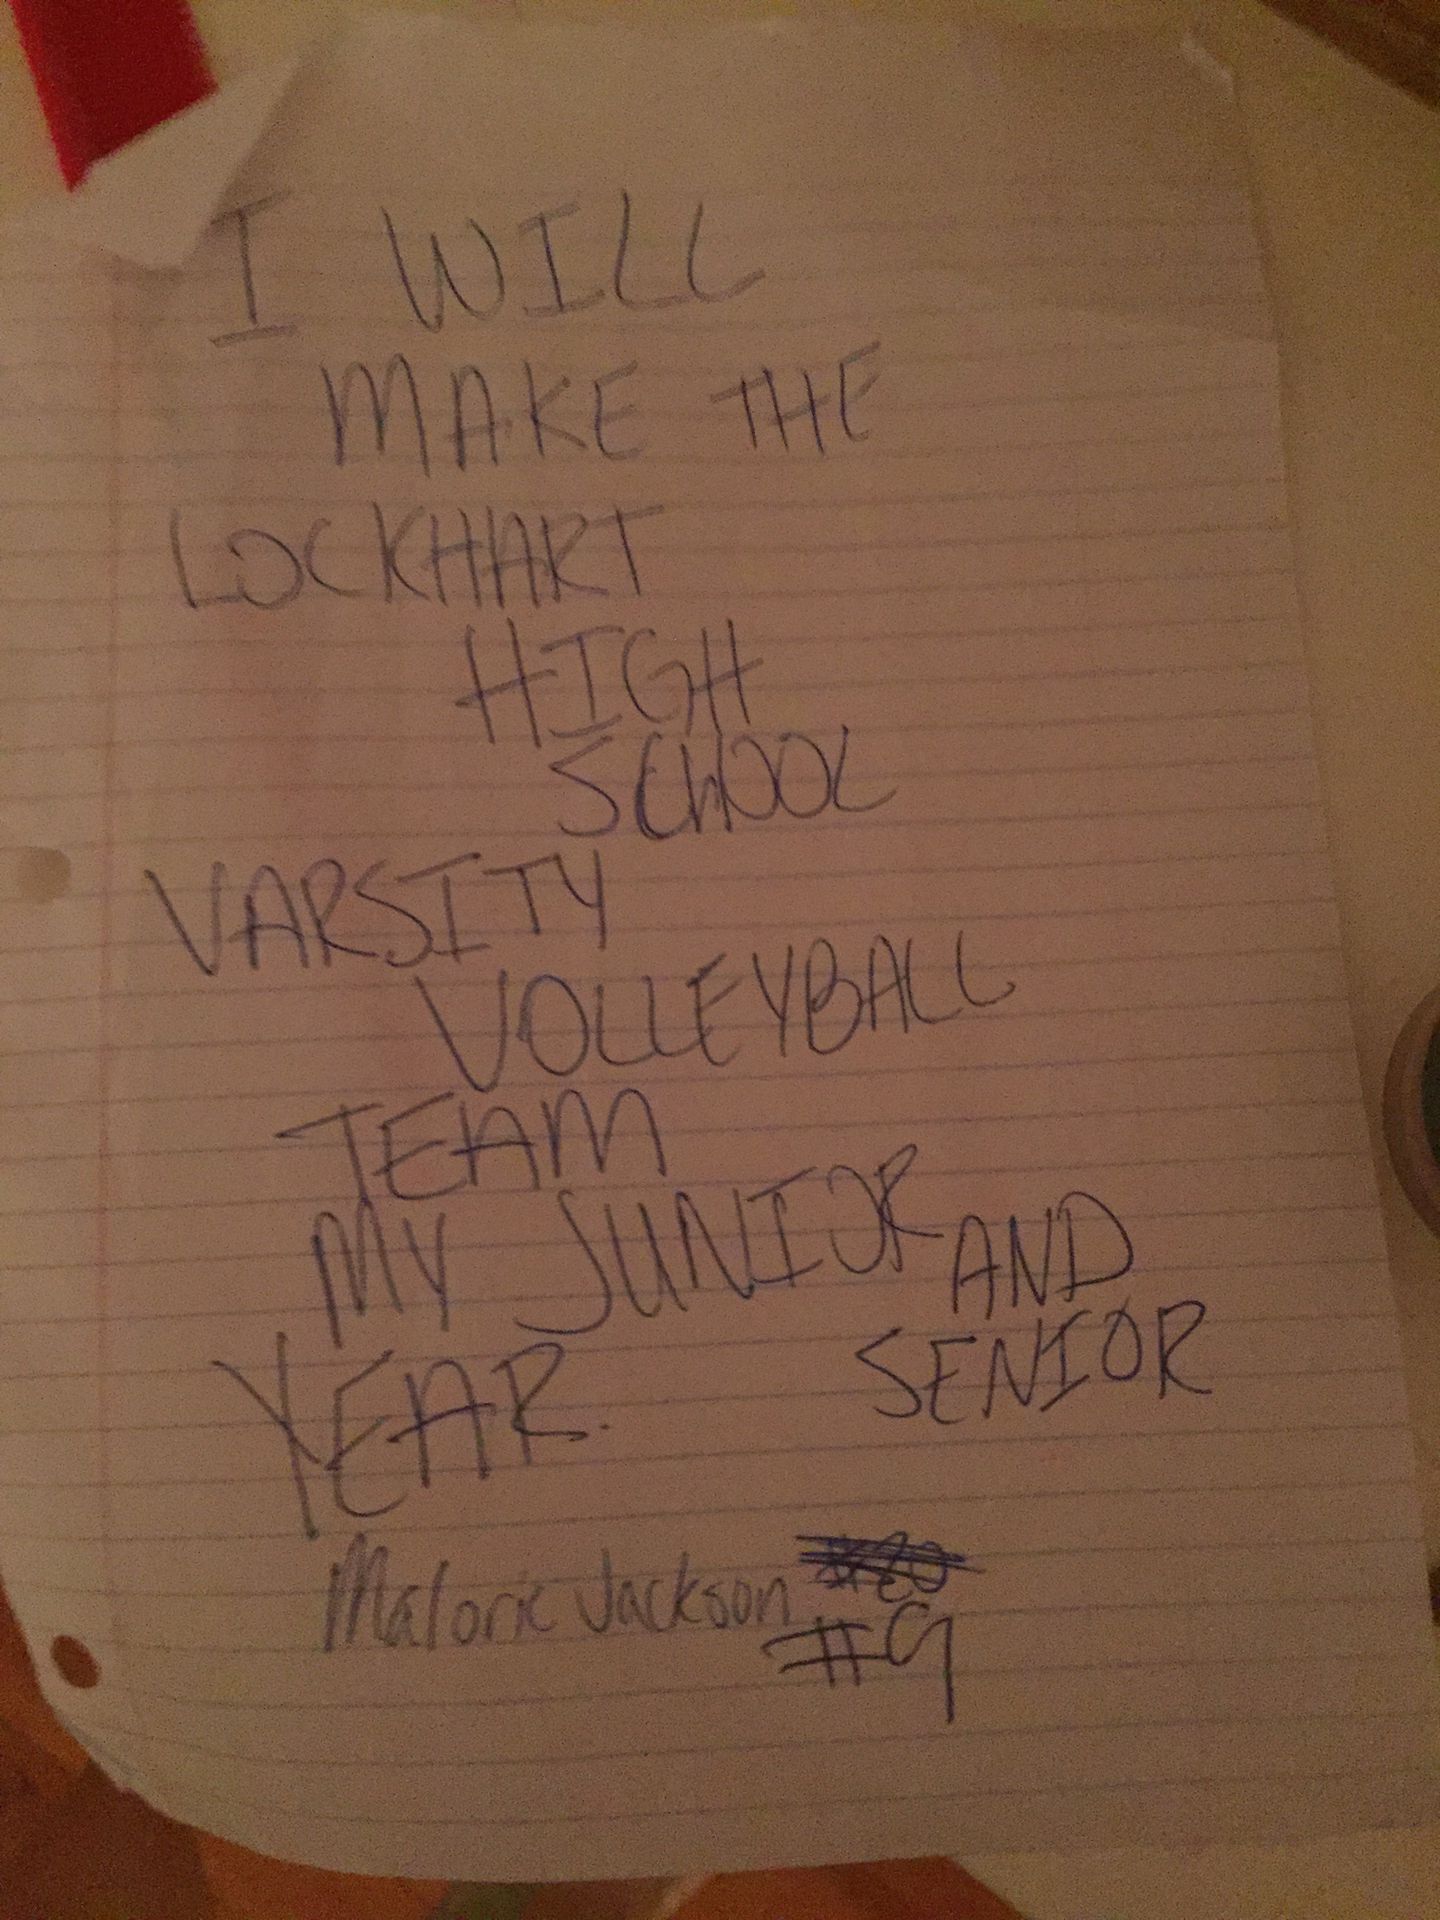 I WILL
MAKE THE
LOCKHART
HIGH
SCHOOL
VARSITY
VOLLEYBALL
TEAM
MY JUNIOR AND
YEAR. SENIOR
Malorie Jackson #20
#9